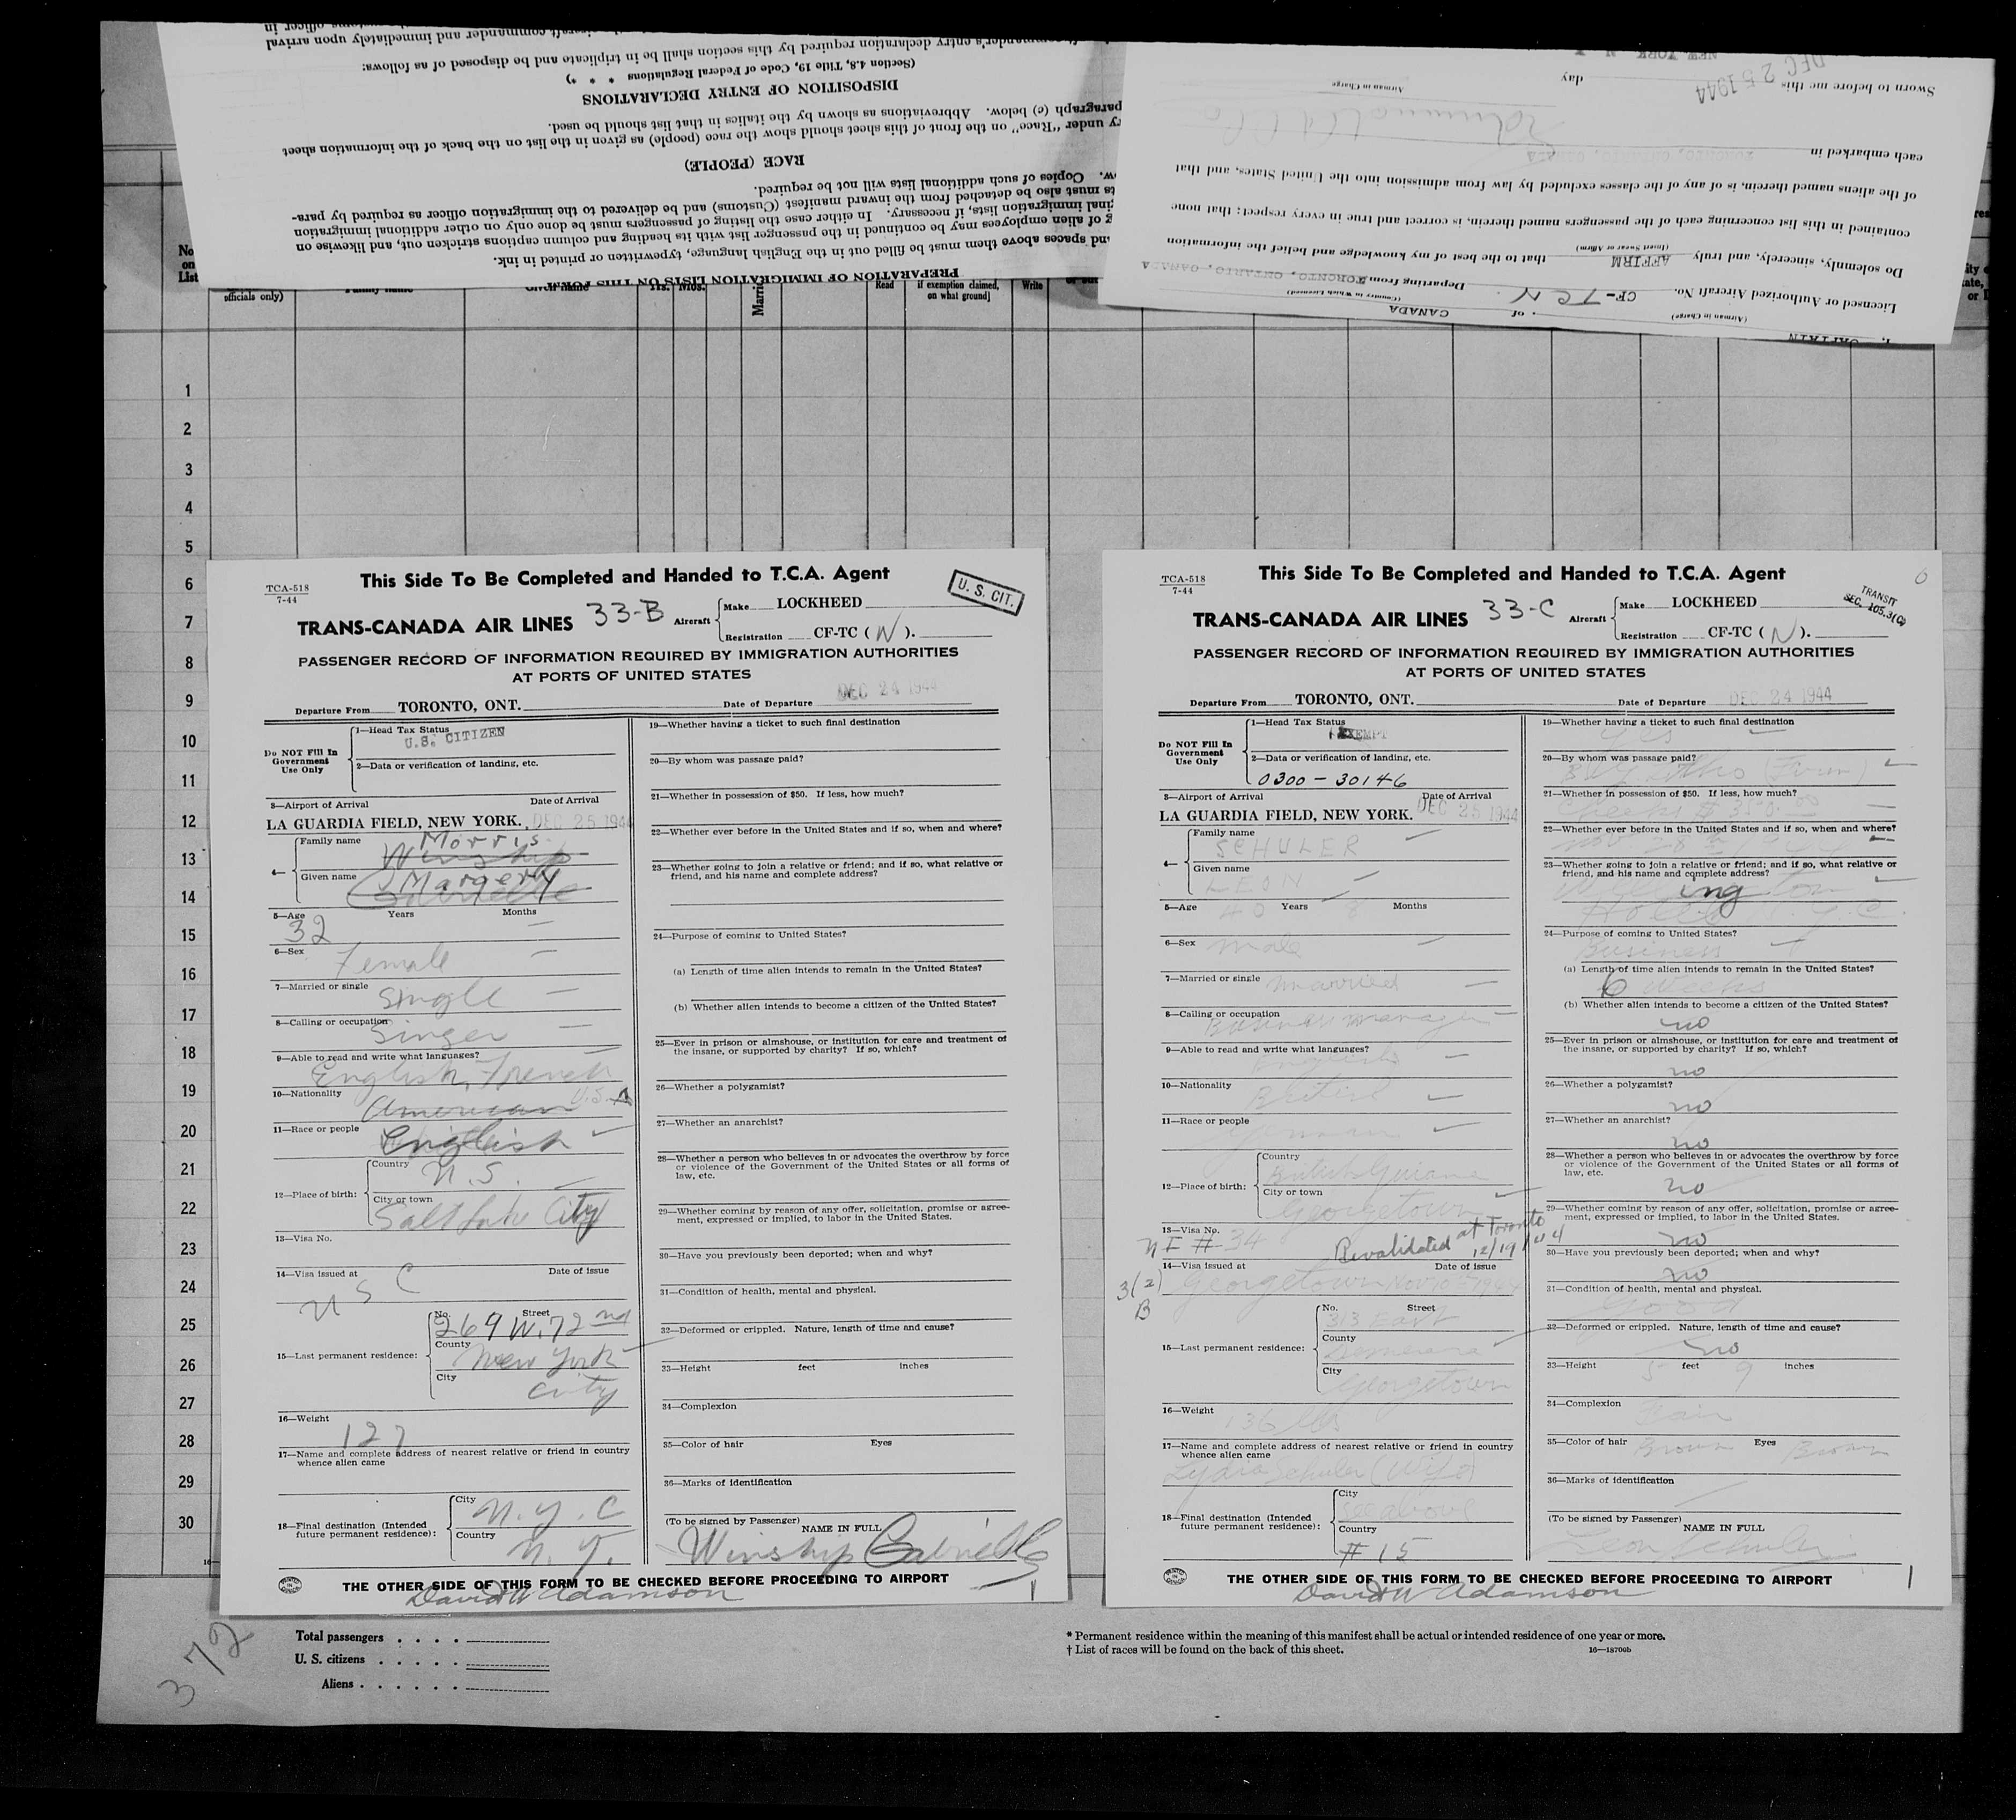 Sworn to before me this DEC 25 1944 day
Airman in Charge
each embarked in TORONTO, ONTARIO, CANADA
of the aliens named therein, is of any of the classes excluded by law from admission into the United States, and that
contained in this list concerning each of the passengers named therein, is correct and true in every respect; that none
Do solemnly, sincerely, and truly AFFIRM that to the best of my knowledge and belief the information
(Insert Swear or Affirm)
Licensed or Authorized Aircraft No. CF-TCN Departing from TORONTO, ONTARIO, CANADA
(Airman in Charge) of CANADA
(Country in Which Licensed)
I, CAPTAIN
commander's entry declaration required by this section shall be in triplicate and disposed of as follows:
(Section 4.8, Title 19, Code of Federal Regulations * * *)
DISPOSITION OF ENTRY DECLARATIONS
paragraph (c) below. Abbreviations as shown by the italics in that list should be used.
under "Race" on the front of this sheet should show the race (people) as given in the list on the back of the information sheet
RACE (PEOPLE)
Copies of such additional lists will not be required.
must also be detached from the inward manifest (Customs) and be delivered to the immigration officer as required by para-
immigration lists, if necessary. In either case the listing of passengers must be done only on other additional immigration
of alien employees may be continued in the passenger list with its heading and column captions stricken out, and likewise on
and spaces above them must be filled out in the English language, typewritten or printed in ink.
PREPARATION OF IMMIGRATION LISTS ON THIS FORM
No
on
List
officials only)
Family name
Given name
Yrs. Mos.
Read
if exemption claimed,
on what ground]
Write
1
2
3
4
5
6
7
8
9
10
11
12
13
14
15
16
17
18
19
20
21
22
23
24
25
26
27
28
29
30
TCA-518
7-44
This Side To Be Completed and Handed to T.C.A. Agent
U. S. CIT.
TRANS-CANADA AIR LINES 33-B Aircraft Make LOCKHEED
Registration CF-TC (N).
PASSENGER RECORD OF INFORMATION REQUIRED BY IMMIGRATION AUTHORITIES
AT PORTS OF UNITED STATES
Departure From TORONTO, ONT. Date of Departure DEC 24 1944
Do NOT Fill In Government Use Only
1—Head Tax Status U.S. CITIZEN
2—Data or verification of landing, etc.
3—Airport of Arrival Date of Arrival
LA GUARDIA FIELD, NEW YORK. DEC 25 1944
4— Family name Morris Winship
Given name Margery Gabrielle
5—Age 32 Years Months
6—Sex Female
7—Married or single Single
8—Calling or occupation Singer
9—Able to read and write what languages?
English, French
10—Nationality American U.S.A
11—Race or people English
12—Place of birth: Country U.S.
City or town Salt Lake City
13—Visa No.
14—Visa issued at Date of issue
U S C
15—Last permanent residence: No. Street 269 W. 72nd
County New York
City City
16—Weight 127
17—Name and complete address of nearest relative or friend in country
whence alien came
18—Final destination (Intended future permanent residence): City N.Y.C
Country N.Y.
19—Whether having a ticket to such final destination
20—By whom was passage paid?
21—Whether in possession of $50. If less, how much?
22—Whether ever before in the United States and if so, when and where?
23—Whether going to join a relative or friend; and if so, what relative or
friend, and his name and complete address?
24—Purpose of coming to United States?
(a) Length of time alien intends to remain in the United States?
(b) Whether alien intends to become a citizen of the United States?
25—Ever in prison or almshouse, or institution for care and treatment of
the insane, or supported by charity? If so, which?
26—Whether a polygamist?
27—Whether an anarchist?
28—Whether a person who believes in or advocates the overthrow by force
or violence of the Government of the United States or all forms of
law, etc.
29—Whether coming by reason of any offer, solicitation, promise or agree-
ment, expressed or implied, to labor in the United States.
30—Have you previously been deported; when and why?
31—Condition of health, mental and physical.
32—Deformed or crippled. Nature, length of time and cause?
33—Height feet inches
34—Complexion
35—Color of hair Eyes
36—Marks of identification
(To be signed by Passenger) NAME IN FULL
Winship Gabrielle
THE OTHER SIDE OF THIS FORM TO BE CHECKED BEFORE PROCEEDING TO AIRPORT
David W Adamson
TCA-518
7-44
This Side To Be Completed and Handed to T.C.A. Agent
TRANSIT
SEC. 105.3(C)
TRANS-CANADA AIR LINES 33-C Aircraft Make LOCKHEED
Registration CF-TC (N).
PASSENGER RECORD OF INFORMATION REQUIRED BY IMMIGRATION AUTHORITIES
AT PORTS OF UNITED STATES
Departure From TORONTO, ONT. Date of Departure DEC 24 1944
Do NOT Fill In Government Use Only
1—Head Tax Status EXEMPT
2—Data or verification of landing, etc.
0300-30146
3—Airport of Arrival Date of Arrival
LA GUARDIA FIELD, NEW YORK. DEC 25 1944
4— Family name SCHULER
Given name LEON
5—Age 40 Years 8 Months
6—Sex Male
7—Married or single Married
8—Calling or occupation Business Manager
9—Able to read and write what languages?
English
10—Nationality British
11—Race or people German
12—Place of birth: Country British Guiana
City or town Georgetown
13—Visa No. # 34 Revalidated at Toronto 12/19/44
14—Visa issued at Date of issue
3(2) B Georgetown Nov 10
15—Last permanent residence: No. Street 313 East
County Demerara
City Georgetown
16—Weight 136 lbs
17—Name and complete address of nearest relative or friend in country
whence alien came
Lydia Schuler (Wife)
18—Final destination (Intended future permanent residence): City See above
Country # 15
19—Whether having a ticket to such final destination
Yes
20—By whom was passage paid?
(Firm)
21—Whether in possession of $50. If less, how much?
22—Whether ever before in the United States and if so, when and where?
23—Whether going to join a relative or friend; and if so, what relative or
friend, and his name and complete address?
Hotel N.Y.C.
24—Purpose of coming to United States?
Business
(a) Length of time alien intends to remain in the United States?
6 weeks
(b) Whether alien intends to become a citizen of the United States?
no
25—Ever in prison or almshouse, or institution for care and treatment of
the insane, or supported by charity? If so, which?
no
26—Whether a polygamist?
no
27—Whether an anarchist?
no
28—Whether a person who believes in or advocates the overthrow by force
or violence of the Government of the United States or all forms of
law, etc.
no
29—Whether coming by reason of any offer, solicitation, promise or agree-
ment, expressed or implied, to labor in the United States.
no
30—Have you previously been deported; when and why?
no
31—Condition of health, mental and physical.
Good
32—Deformed or crippled. Nature, length of time and cause?
no
33—Height 5 feet 9 inches
34—Complexion Fair
35—Color of hair Brown Eyes Brown
36—Marks of identification
(To be signed by Passenger) NAME IN FULL
Leon Schuler
THE OTHER SIDE OF THIS FORM TO BE CHECKED BEFORE PROCEEDING TO AIRPORT
David W Adamson
372
Total passengers
U. S. citizens
Aliens
* Permanent residence within the meaning of this manifest shall be actual or intended residence of one year or more.
† List of races will be found on the back of this sheet. 16—18700b